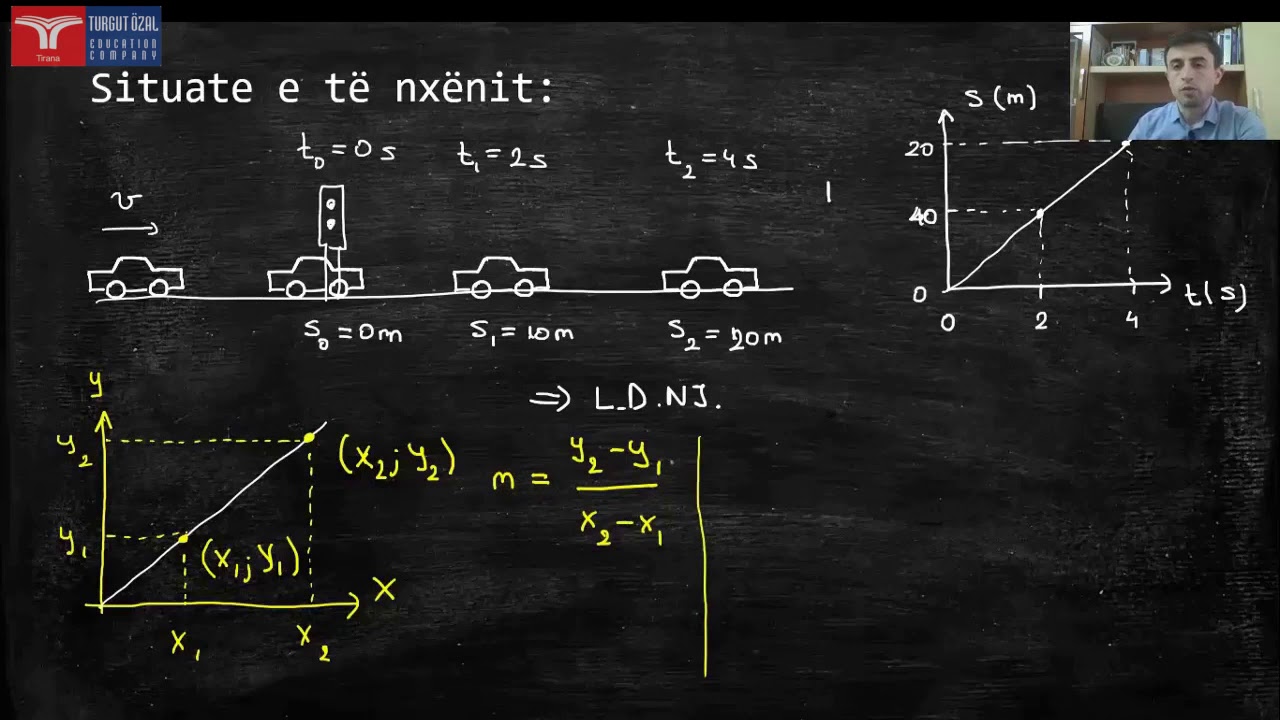 TURGUT ÖZAL
EDUCATION
COMPANY
Tirana
Situate e të nxënit:
t₀ = 0 s
t₁ = 2 s
t₂ = 4 s
v
S₀ = 0 m
S₁ = 10 m
S₂ = 20 m
S (m)
20
0
t (s)
0 2 4
=> L.D.NJ.
y
y₂
y₁
(x₂; y₂)
(x₁; y₁)
x
x₁ x₂
m = y₂ - y₁
x₂ - x₁